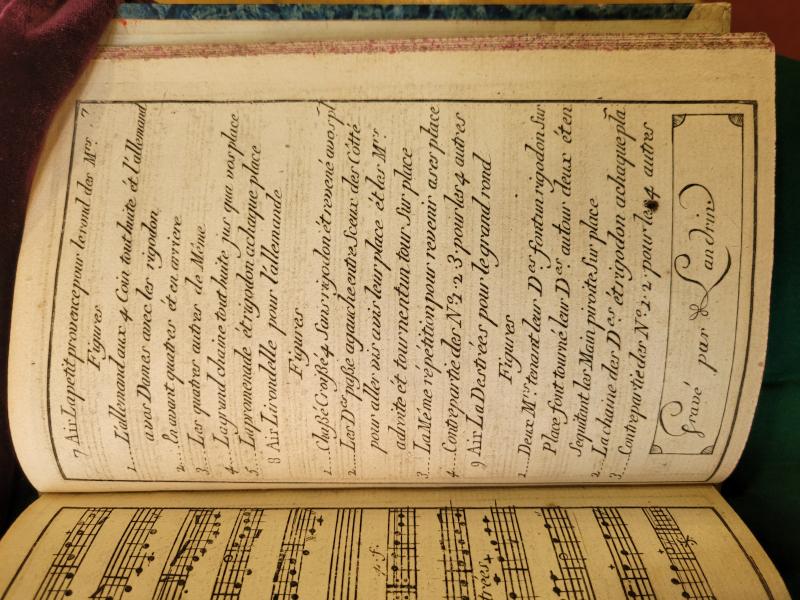 7
7 Air La petit provence pour le rond des Mrs
Figures
1... L'allemand aux 4 Coin tout huite ét l'allemand
avos Dames avec les rigodon
2... En avant quatres ét en arriere
3... Les quatres autres de Même
4... La grand chaine tout huite jus qua vos place
5... La promenade ét rigodon a chaque place
8 Air L'irondelle pour l'allemande
Figures
1... Chaßé Croißé 4 Sans rigodon ét revené avos pl
2... Les Des paße agauche entre Sceux des Côtté
pour aller vis avis leur place ét les Mrs
adroite ét tournent un tour Sur place
3... La Même répétition pour revenir a ses place
4... Contrepartie des No 1 2 3 pour les 4 autres
9 Air La Destrées pour le grand rond
Figures
1... Deux Mrs tenant leur Des font un rigodon Sur
Place font tourné leur Des autour deux ét en
Sequittent les Main piroite Sur place
2... La chaine des Des ét rigodon a chaque pla
3... Contrepartie des No 1 2 pour les 4 autres
Gravé par Landrin